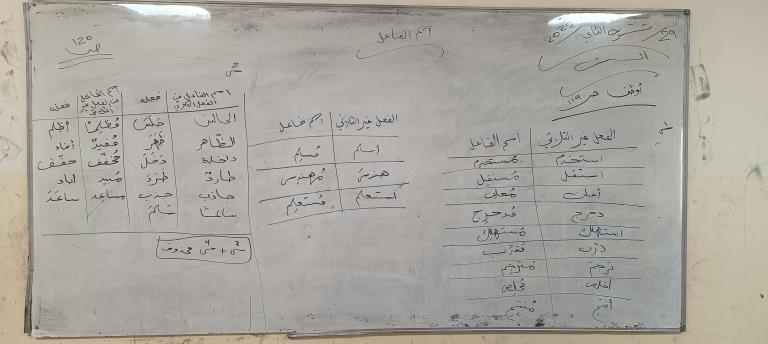 29/ تشرين الثاني
السبت
اسم الفاعل
أوظف ص ١١٩
الفعل غير الثلاثي | اسم الفاعل
استخدم | مُستخدِم
استقبل | مُستقبِل
أعلن | مُعلِن
دحرج | مُدحرِج
استهلك | مُستهلِك
درّب | مُدرِّب
ترجم | مُترجِم
أخلص | مُخلِص
أنتج | مُنتِج
الفعل غير الثلاثي | اسم فاعل
أسلم | مُسلِم
هندسَ | مُهندِس
استعلم | مُستعلِم
ص ١٢٥
اسم الفاعل من الفعل الثلاثي | فعله | اسم الفاعل من الفعل غير الثلاثي | فعله
الجالس | جَلَسَ | مُظلِم | أظلم
الظاهر | ظَهَرَ | مُفيد | أفاد
داخله | دَخَلَ | مُخفّف | خفّف
طارد | طَرَدَ | مُبيد | أباد
جاذب | جذب | مساعِد | ساعَدَ
سالمًا | سَلِمَ
محذوف